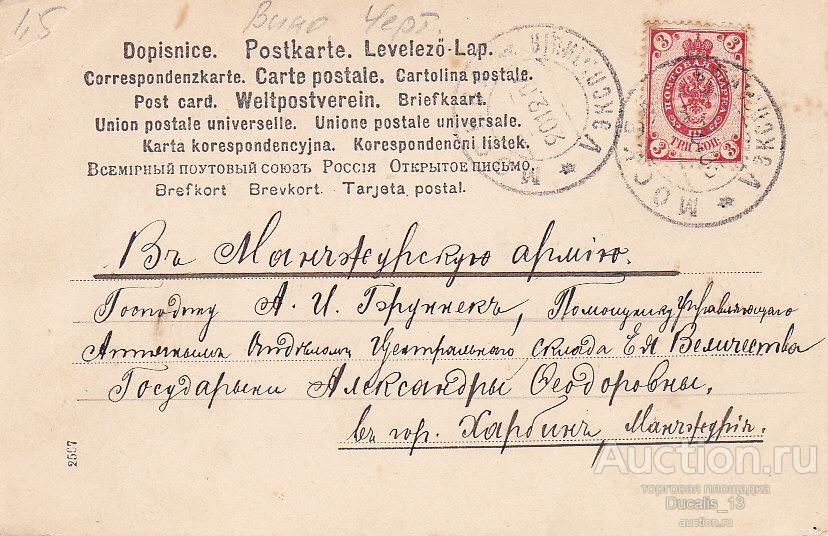 1,5
Вино Черт.
Dopisnice. Postkarte. Levelező-Lap.
Correspondenzkarte. Carte postale. Cartolina postale.
Post card. Weltpostverein. Briefkaart.
Union postale universelle. Unione postale universale.
Karta korespondencyjna. Korespondenčni listek.
Всемірный поутовый союзъ Россія Открытое письмо.
Brefkort Brevkort. Tarjeta postal.
3 3
ПОЧТОВАЯ МАРКА
3 3
ТРИ КОП.
МОСКВА
МОСКВА
Въ Манчжурскую армію.
Господину А. И. Груннекъ, Помощнику Управляющаго
Аптечнымъ Отдѣломъ Центральнаго склада Ея Величества
Государыни Александры Ѳеодоровны,
въ гор. Харбинъ, Манчжурія.
2567
Auction.ru
торговая площадка
Ducalis_13
auction.ru